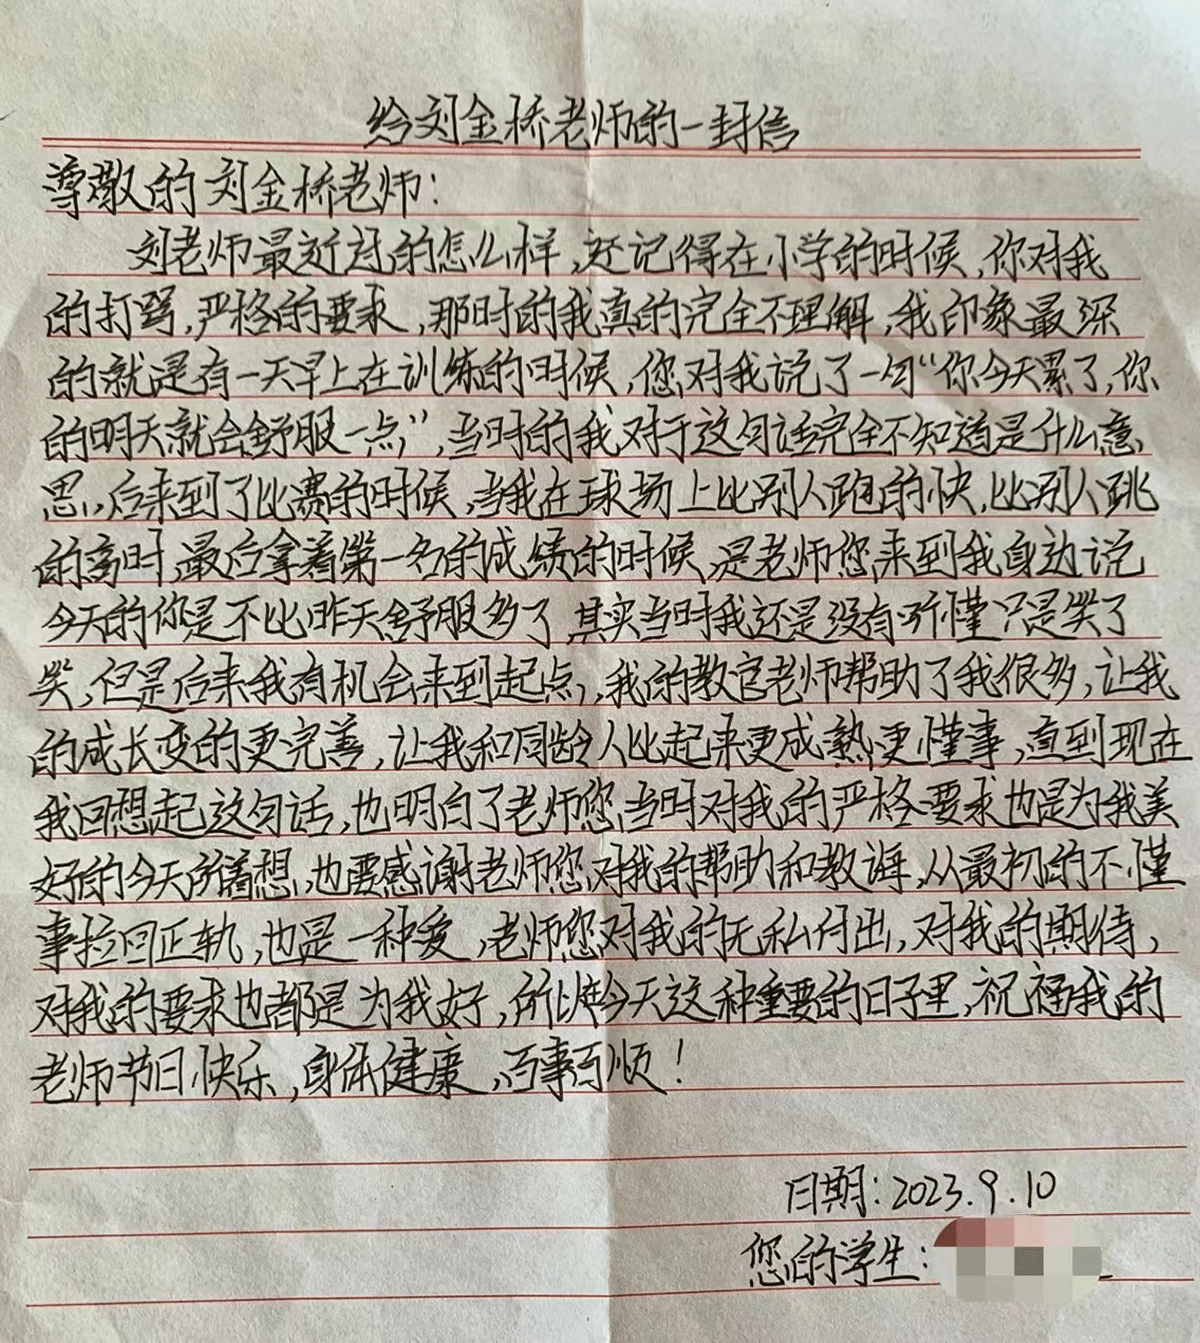 给刘金桥老师的一封信
尊敬的刘金桥老师：
刘老师最近过的怎么样，还记得在小学的时候，你对我
的打骂，严格的要求，那时的我真的完全不理解，我印象最深
的就是有一天早上在训练的时候，您对我说了一句“你今天累了，你
的明天就会舒服一点”，当时的我对于这句话完全不知道是什么意
思，后来到了比赛的时候，当我在球场上比别人跑的快，比别人跳
的高时，最后拿着第一名的成绩的时候，是老师您来到我身边说
今天的你是不比昨天舒服多了，其实当时我还是没有听懂只是笑了
笑，但是后来我有机会来到起点，我的教官老师帮助了我很多，让我
的成长变的更完善，让我和同龄人比起来更成熟更懂事，直到现在
我回想起这句话，也明白了老师您当时对我的严格要求也是为我美
好的今天所着想，也要感谢老师您对我的帮助和教诲，从最初的不懂
事拉回正轨，也是一种爱，老师您对我的无私付出，对我的期待，
对我的要求也都是为我好，所以在今天这种重要的日子里，祝福我的
老师节日快乐，身体健康，百事百顺！
日期：2023.9.10
您的学生：